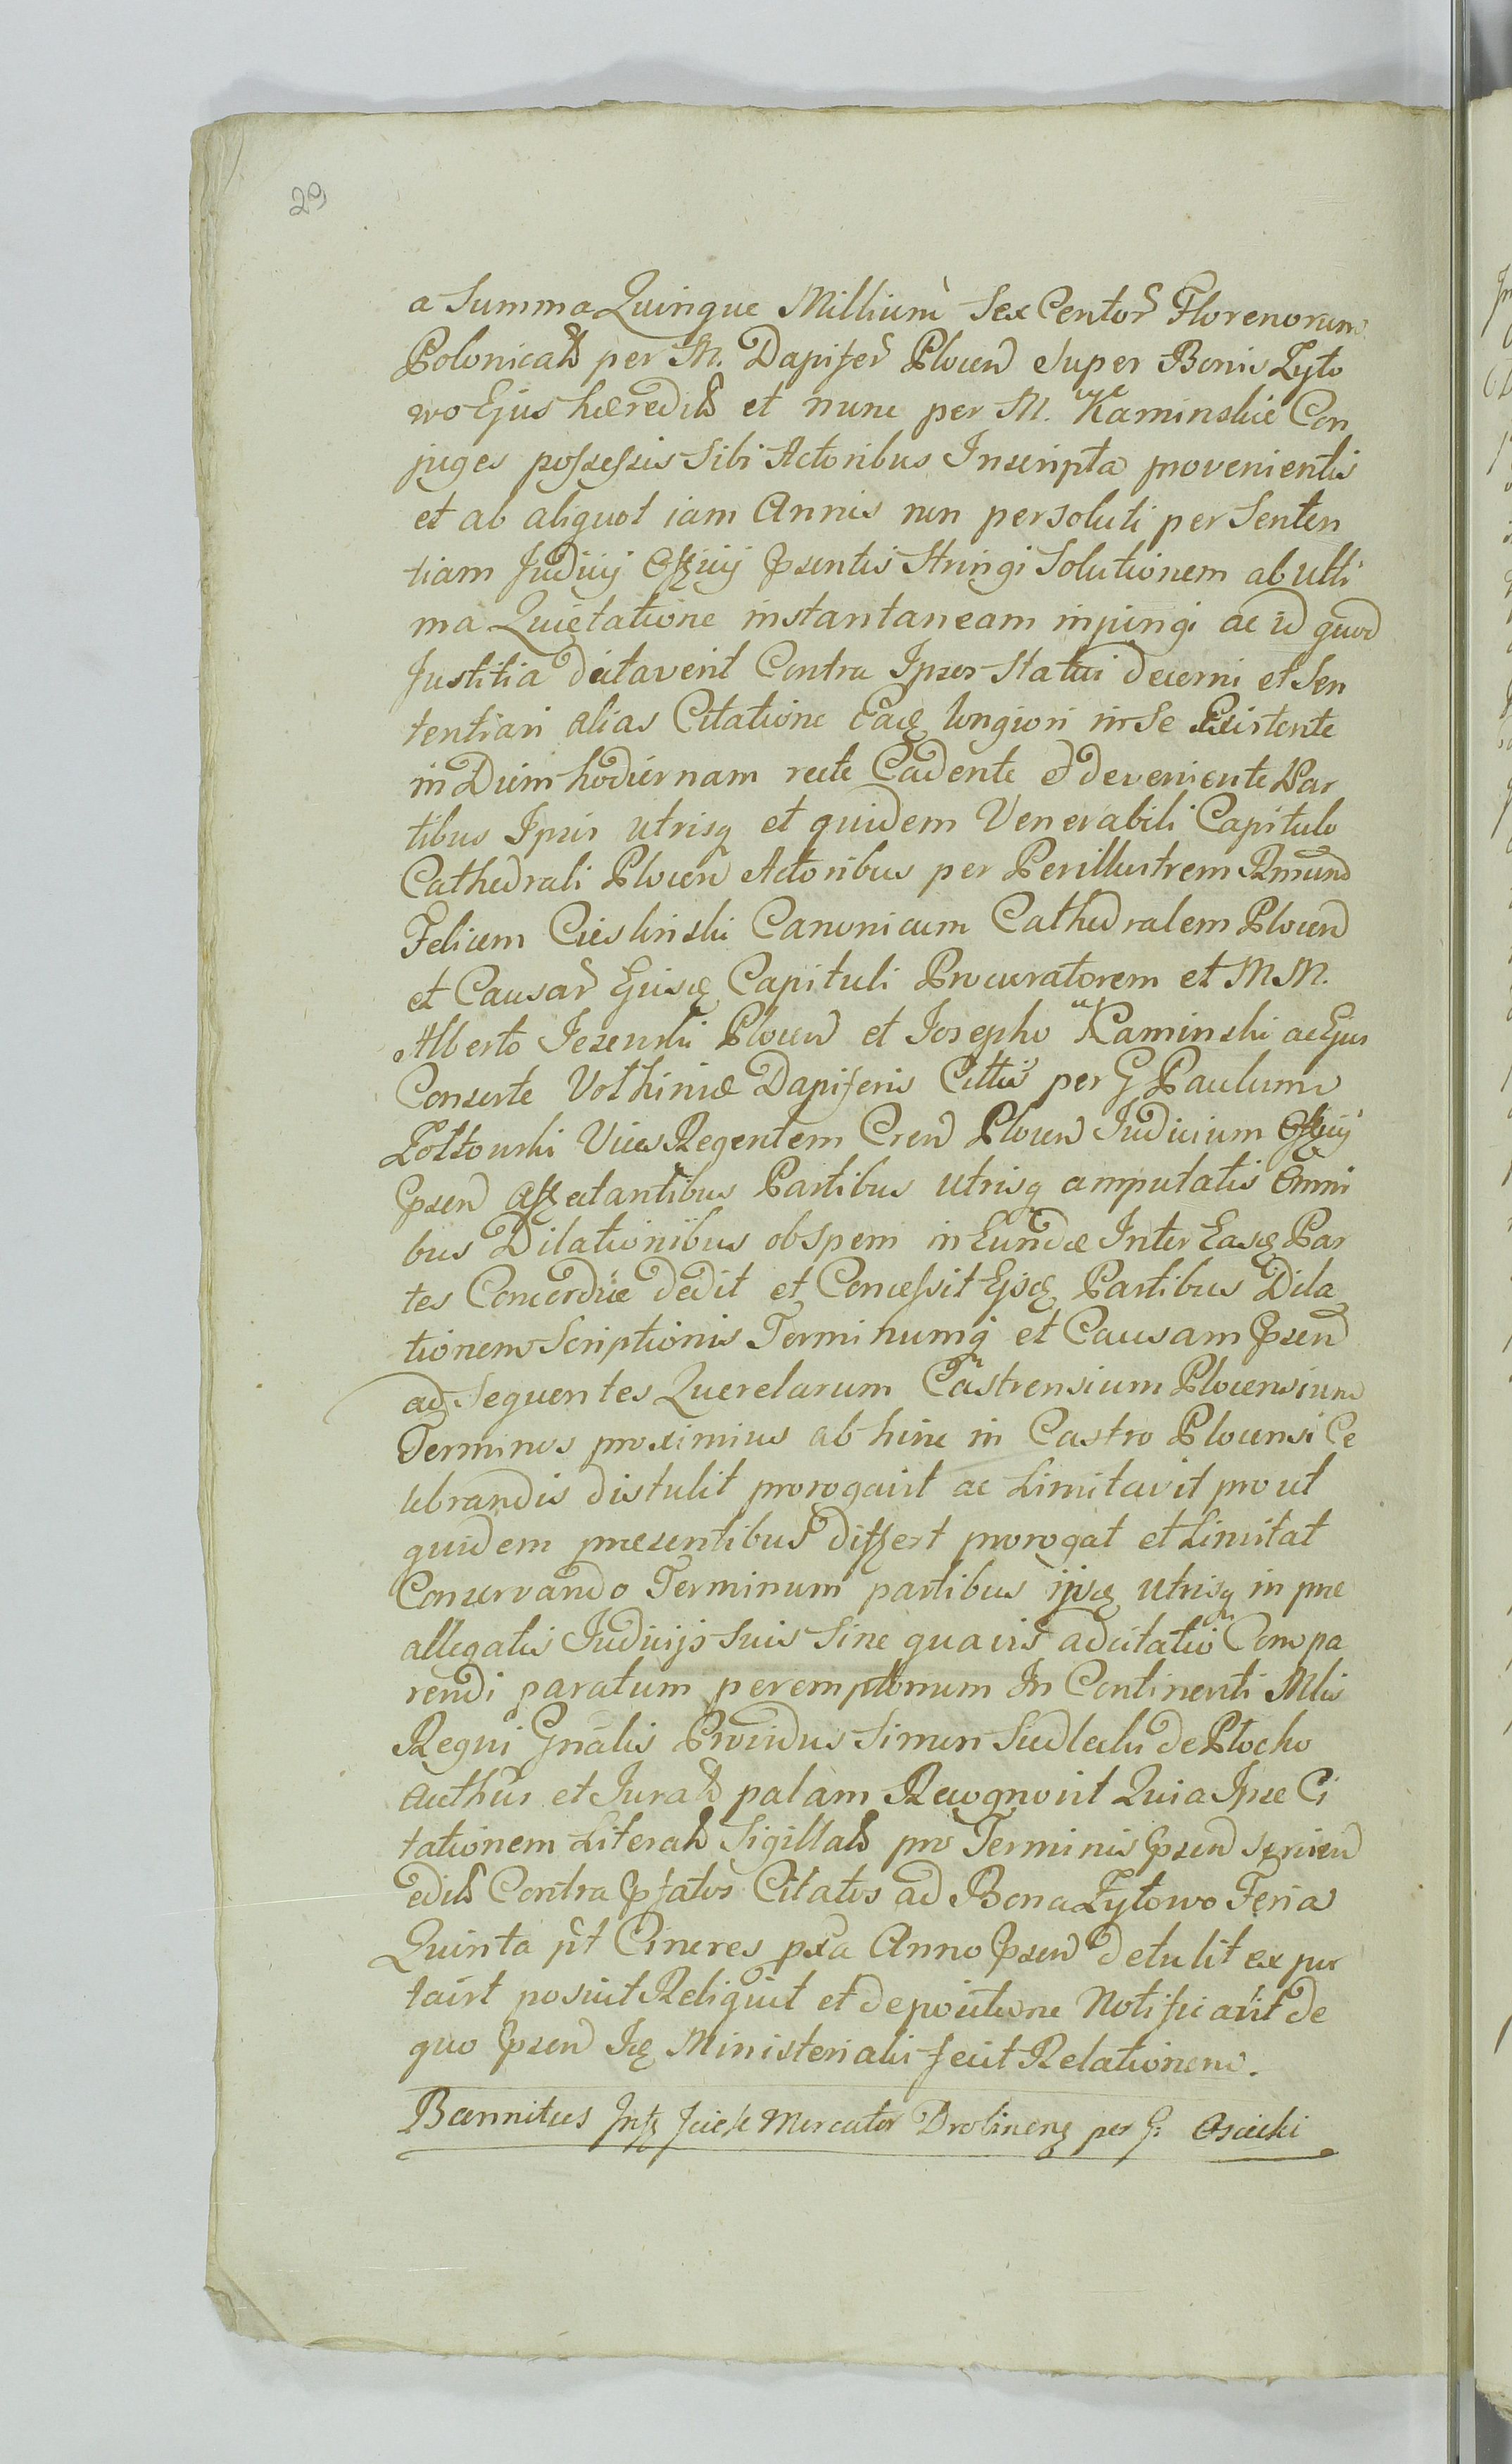 29
a Summa Quinque Millium Sex Centor Florenorum
Polonical per M. Dapifer Plocen Super Bonis Zyto
wo Ejus hæredit et nunc per M. Kaminskie Con
juges possessis Sibi Actoribus Inscripta provenientis
et ab aliquot iam Annis non persoluti per Senten
tiam Judicij Officij Prsentis Stringi Solutionem ab ulti
ma Quietatione instantaneam injungi ac id quod
Justitia dictaverit Contra Ipsos Statui decerni et Sen
tentiari alias Citatione Eadq longiori in Se Existente
in Diem hodiernam recte Cadente et deveniente Par
tibus Ipsis utrisq et quidem Venerabili Capitulo
Cathedrali Plocen Actoribus per Perillustrem Rmund
Felicem Cieslinski Canonicum Cathedralem Plocen
et Causar Ejusdq Capituli Procuratorem et M M.
Alberto Jezewski Plocen et Josepho Kaminski ac Ejus
Consorte Dapiferis Cittis per G Paulum
Zoltowski Vices Regentem Cren Plocen Judicium Officij
Prsen Affectantibus Partibus utrisq amputatis Omni
bus Dilationibus ob spem in Eundæ Inter Easdq Par
tes Concordiæ dedit et Concessit Ejsdq Partibus Dila
tionem Scriptionis Terminumq et Causam Prsen
ad Sequentes Querelarum Castrensium Plocensium
Terminos proximius ab hinc in Castro Plocensi Ce
lebrandis distulit prorogavit ac Limitavit prout
quidem præsentibus differt prorogat et Limitat
Conservando Terminum partibus ijsdq utrisq in præ
allegatis Judicijs Suis Sine quavis adcitatio Compa
rendi paratum peremptorium In Continenti Mlis
Regni Gnalis Providus Simon Siedlecki de Plocko
Authus et Jurat palam Recognovit Quia Ipse Ci
tationem Literal Sigillat pro Terminis Prsen
edit Contra Prfatos Citatos ad Bona Zytowo Feria
Quinta pt Cineres pxa Anno Prsen detulit ex por
tavit posuit Reliquit et de positione Notificavit de
quo Prsen Idq Ministerialis fecit Relationem.
Bannitus Mercator Drobinens per G: Osiecki